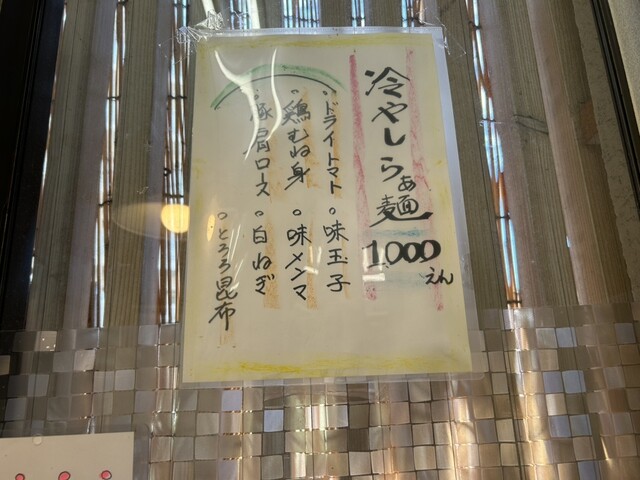 冷やしらぁ麺
1,000えん
。ドライトマト。味玉子
。鶏むね身。味メンマ
。豚肩ロース。白ねぎ
。とろろ昆布